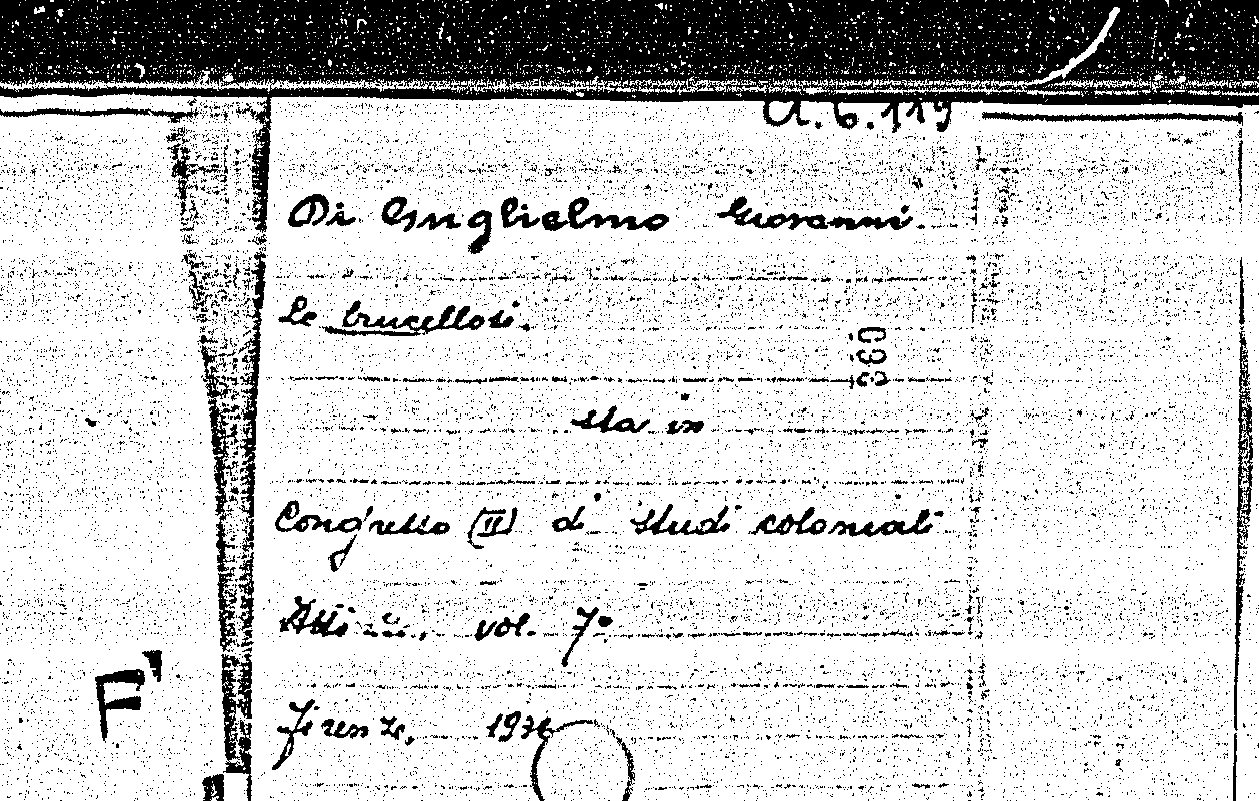 A.6.119
Di Guglielmo Giovanni.
Le brucellosi.
360
sta in
Congresso (II) di studi coloniali
Atti vol. 7°
Firenze,
F